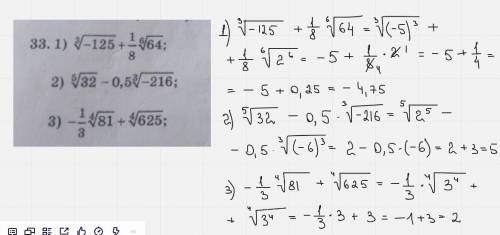 33. 1) ∛-125 + 1/8 ⁶√64;
2) ⁵√32 – 0,5∛-216;
3) -1/3 ⁴√81 + ⁴√625;
1) ∛-125 + 1/8 ⁶√64 = ∛(-5)³ +
+ 1/8 ⁶√2⁶ = -5 + 1/8₄ · 2¹ = -5 + 1/4 =
= -5 + 0,25 = -4,75
2) ⁵√32 - 0,5 · ∛-216 = ⁵√2⁵ -
- 0,5 · ∛(-6)³ = 2 - 0,5·(-6) = 2+3=5
3) -1/3 ⁴√81 + ⁴√625 = -1/3 · ⁴√3⁴ +
+ ⁴√3⁴ = -1/3 · 3 + 3 = -1+3 = 2